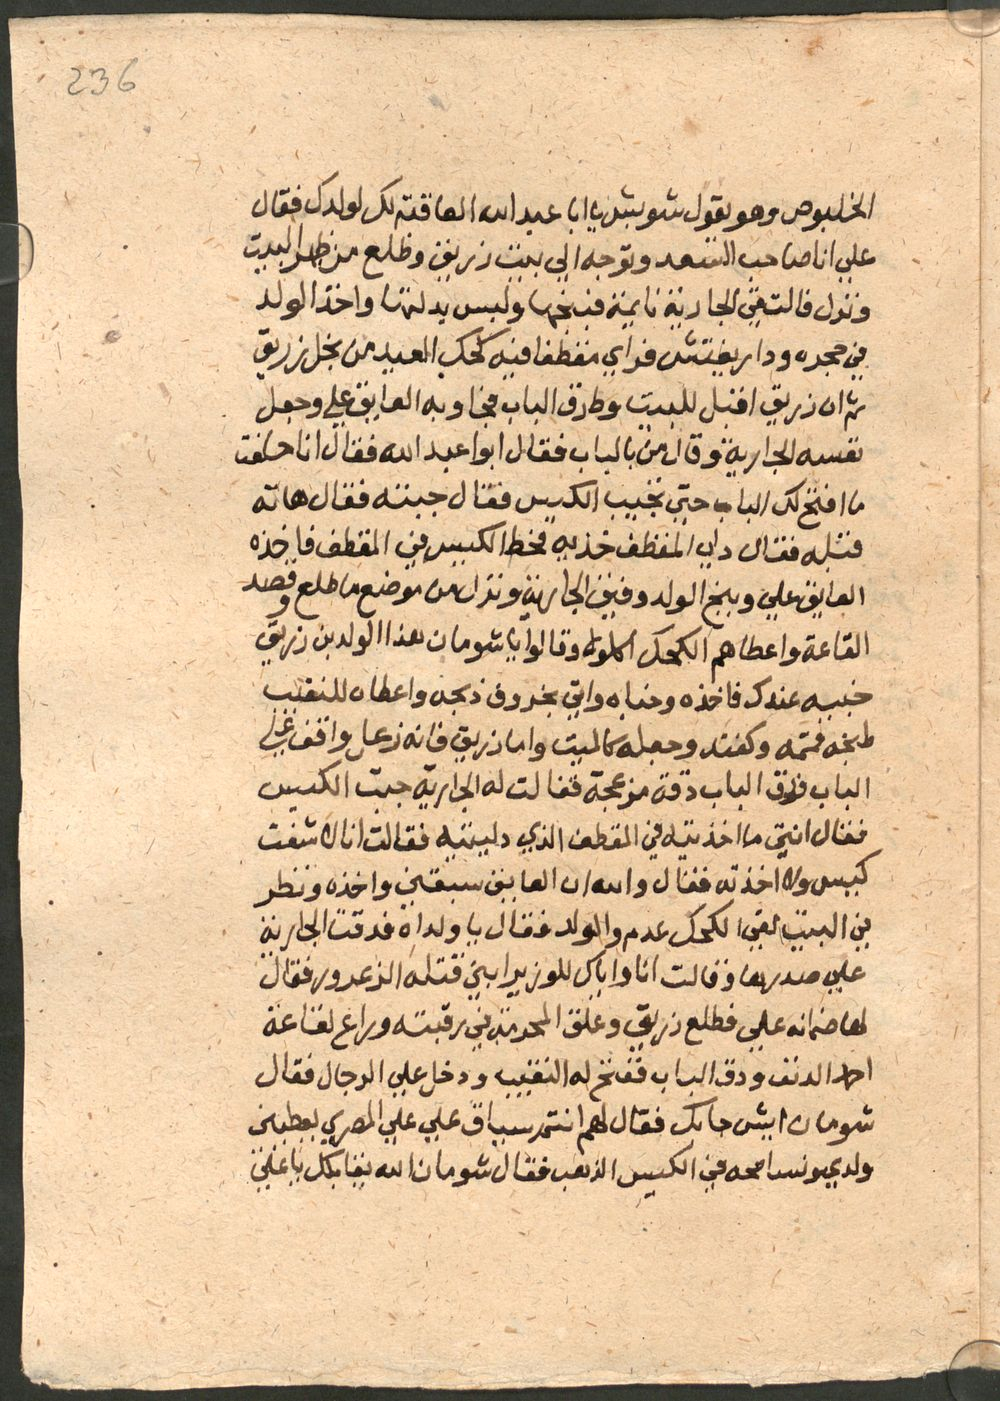 236
الخلبوص وهو يقول شوبش يا ابا عبد الله العاقبة لك لولدك فقال
علي انا صاحب السعد وتوجه الي بيت زريق وطلع من ظهر البيت
ونزل فالتقي الجارية نايمة فبنجها ولبس بدلتها واخذ الولد
في حجره ودار يفتش فراي مقطفا فيه كحك العيد من بخل زريق
ثم ان زريق اقبل للبيت وطرق الباب فجاوبه العايق علي وجعل
نفسه الجارية وقال من بالباب فقال ابوا عبد الله فقال انا حلفت
ما افتح لك الباب حتي تجيب الكيس فقال جبته فقال هاته
قبله فقال دلي المقطف خذيه فحط الكيس في المقطف فاخذه
العايق علي وبنج الولد وفيق الجارية ونزل من موضع ما طلع وقصد
القاعة واعطاهم الكحك اكلوه وقالوا يا شومان هذا الولد بن زريق
خبيه عندك فاخذه وخباه واتي بخروف ذبحه واعطاه للنقيب
طبخه قمه وكفنه وجعله كالميت واما زريق فانه زعل واقف علي
الباب فدق الباب دقة مزعجة فقالت له الجارية جبت الكيس
فقال انتي ما اخذتيه في المقطف الذي دليتيه فقالت انا لا شفت
كيس ولا اخذته فقال والله ان العايق سبقني واخذه ونظر
في البيت لقي الكحك عدم والولد فقال يا ولداه فدقت الجارية
علي صدرها وقالت انا واياك للوزير ابني قتله الزعدور فقال
لها ضمانه علي فطلع زريق وعلق المحرمة في رقبته وراح لقاعة
احمد الدنف ودق الباب ففتح له النقيب ودخل علي الرجال فقال
شومان ايش جابك فقال لهم انتم سياق علي علي المصري يعطيني
ولدي ونسامحه في الكيس الذهب فقال شومان الله يقابلك يا علي